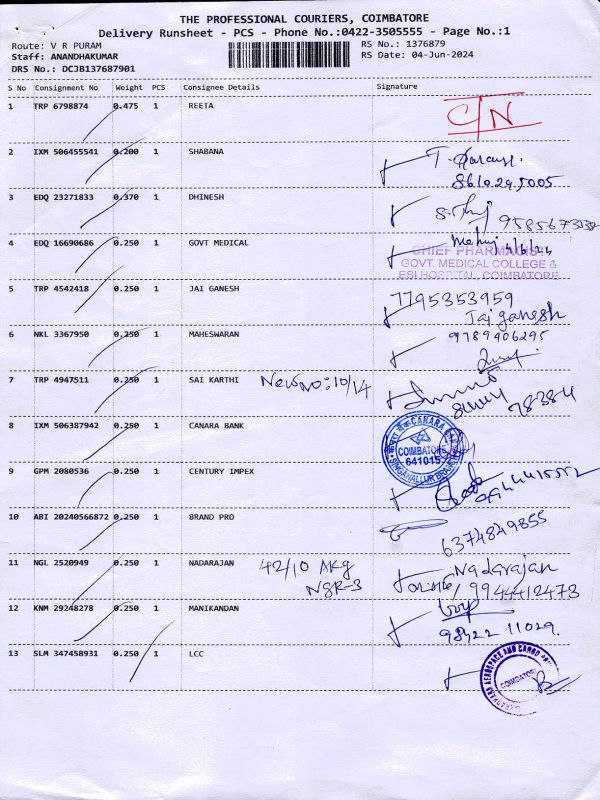 THE PROFESSIONAL COURIERS, COIMBATORE
Delivery Runsheet - PCS - Phone No.:0422-3505555 - Page No.:1
Route: V R PURAM RS No.: 1376879
Staff: ANANDHAKUMAR RS Date: 04-Jun-2024
DRS No.: DCJB137687901
S No Consignment No Weight PCS Consignee Details Signature
1 TRP 6798874 0.475 1 REETA
2 IXM 506455541 0.200 1 SHABANA
3 EDQ 23271833 0.370 1 DHINESH
4 EDQ 16690686 0.250 1 GOVT MEDICAL 4/6/24
CHIEF PHARMACIST
GOVT. MEDICAL COLLEGE &
ESI HOSPITAL, COIMBATORE
5 TRP 4542418 0.250 1 JAI GANESH 7795353959
Jai ganesh
6 NKL 3367950 0.250 1 MAHESWARAN 9789906295
7 TRP 4947511 0.250 1 SAI KARTHI New No: 10/14
78384
8 IXM 506387942 0.250 1 CANARA BANK
COIMBATORE
641015
SINGANALLUR BRANCH
9 GPM 2080536 0.250 1 CENTURY IMPEX
10 ABI 20240566872 0.250 1 BRAND PRO 6374849855
11 NGL 2520949 0.250 1 NADARAJAN 42/10 AKG Nadarajan
NGR-3 9944412473
12 KNM 29248278 0.250 1 MANIKANDAN
98422 11029.
13 SLM 347458931 0.250 1 LCC
COIMBATORE